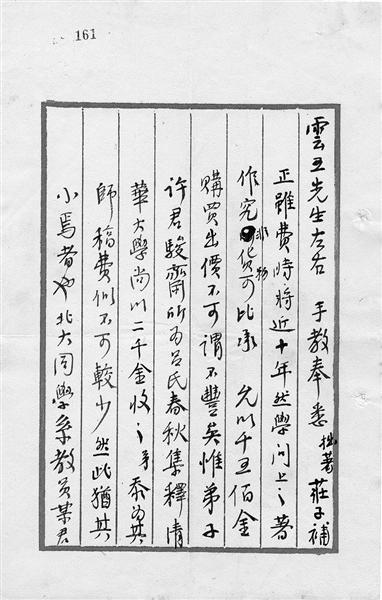 161
雲五先生左右 手教奉悉拙著莊子補
正雖費時將近十年然學問上之著
作究非貨物可比承 允以千五佰金
購買出價不可謂不豐矣惟弟子
許君駿齋所為呂氏春秋集釋清
華大學尚以二千金收之弟忝為其
師稿費似不可較少然此猶其
小焉者也北大同學系教員某君